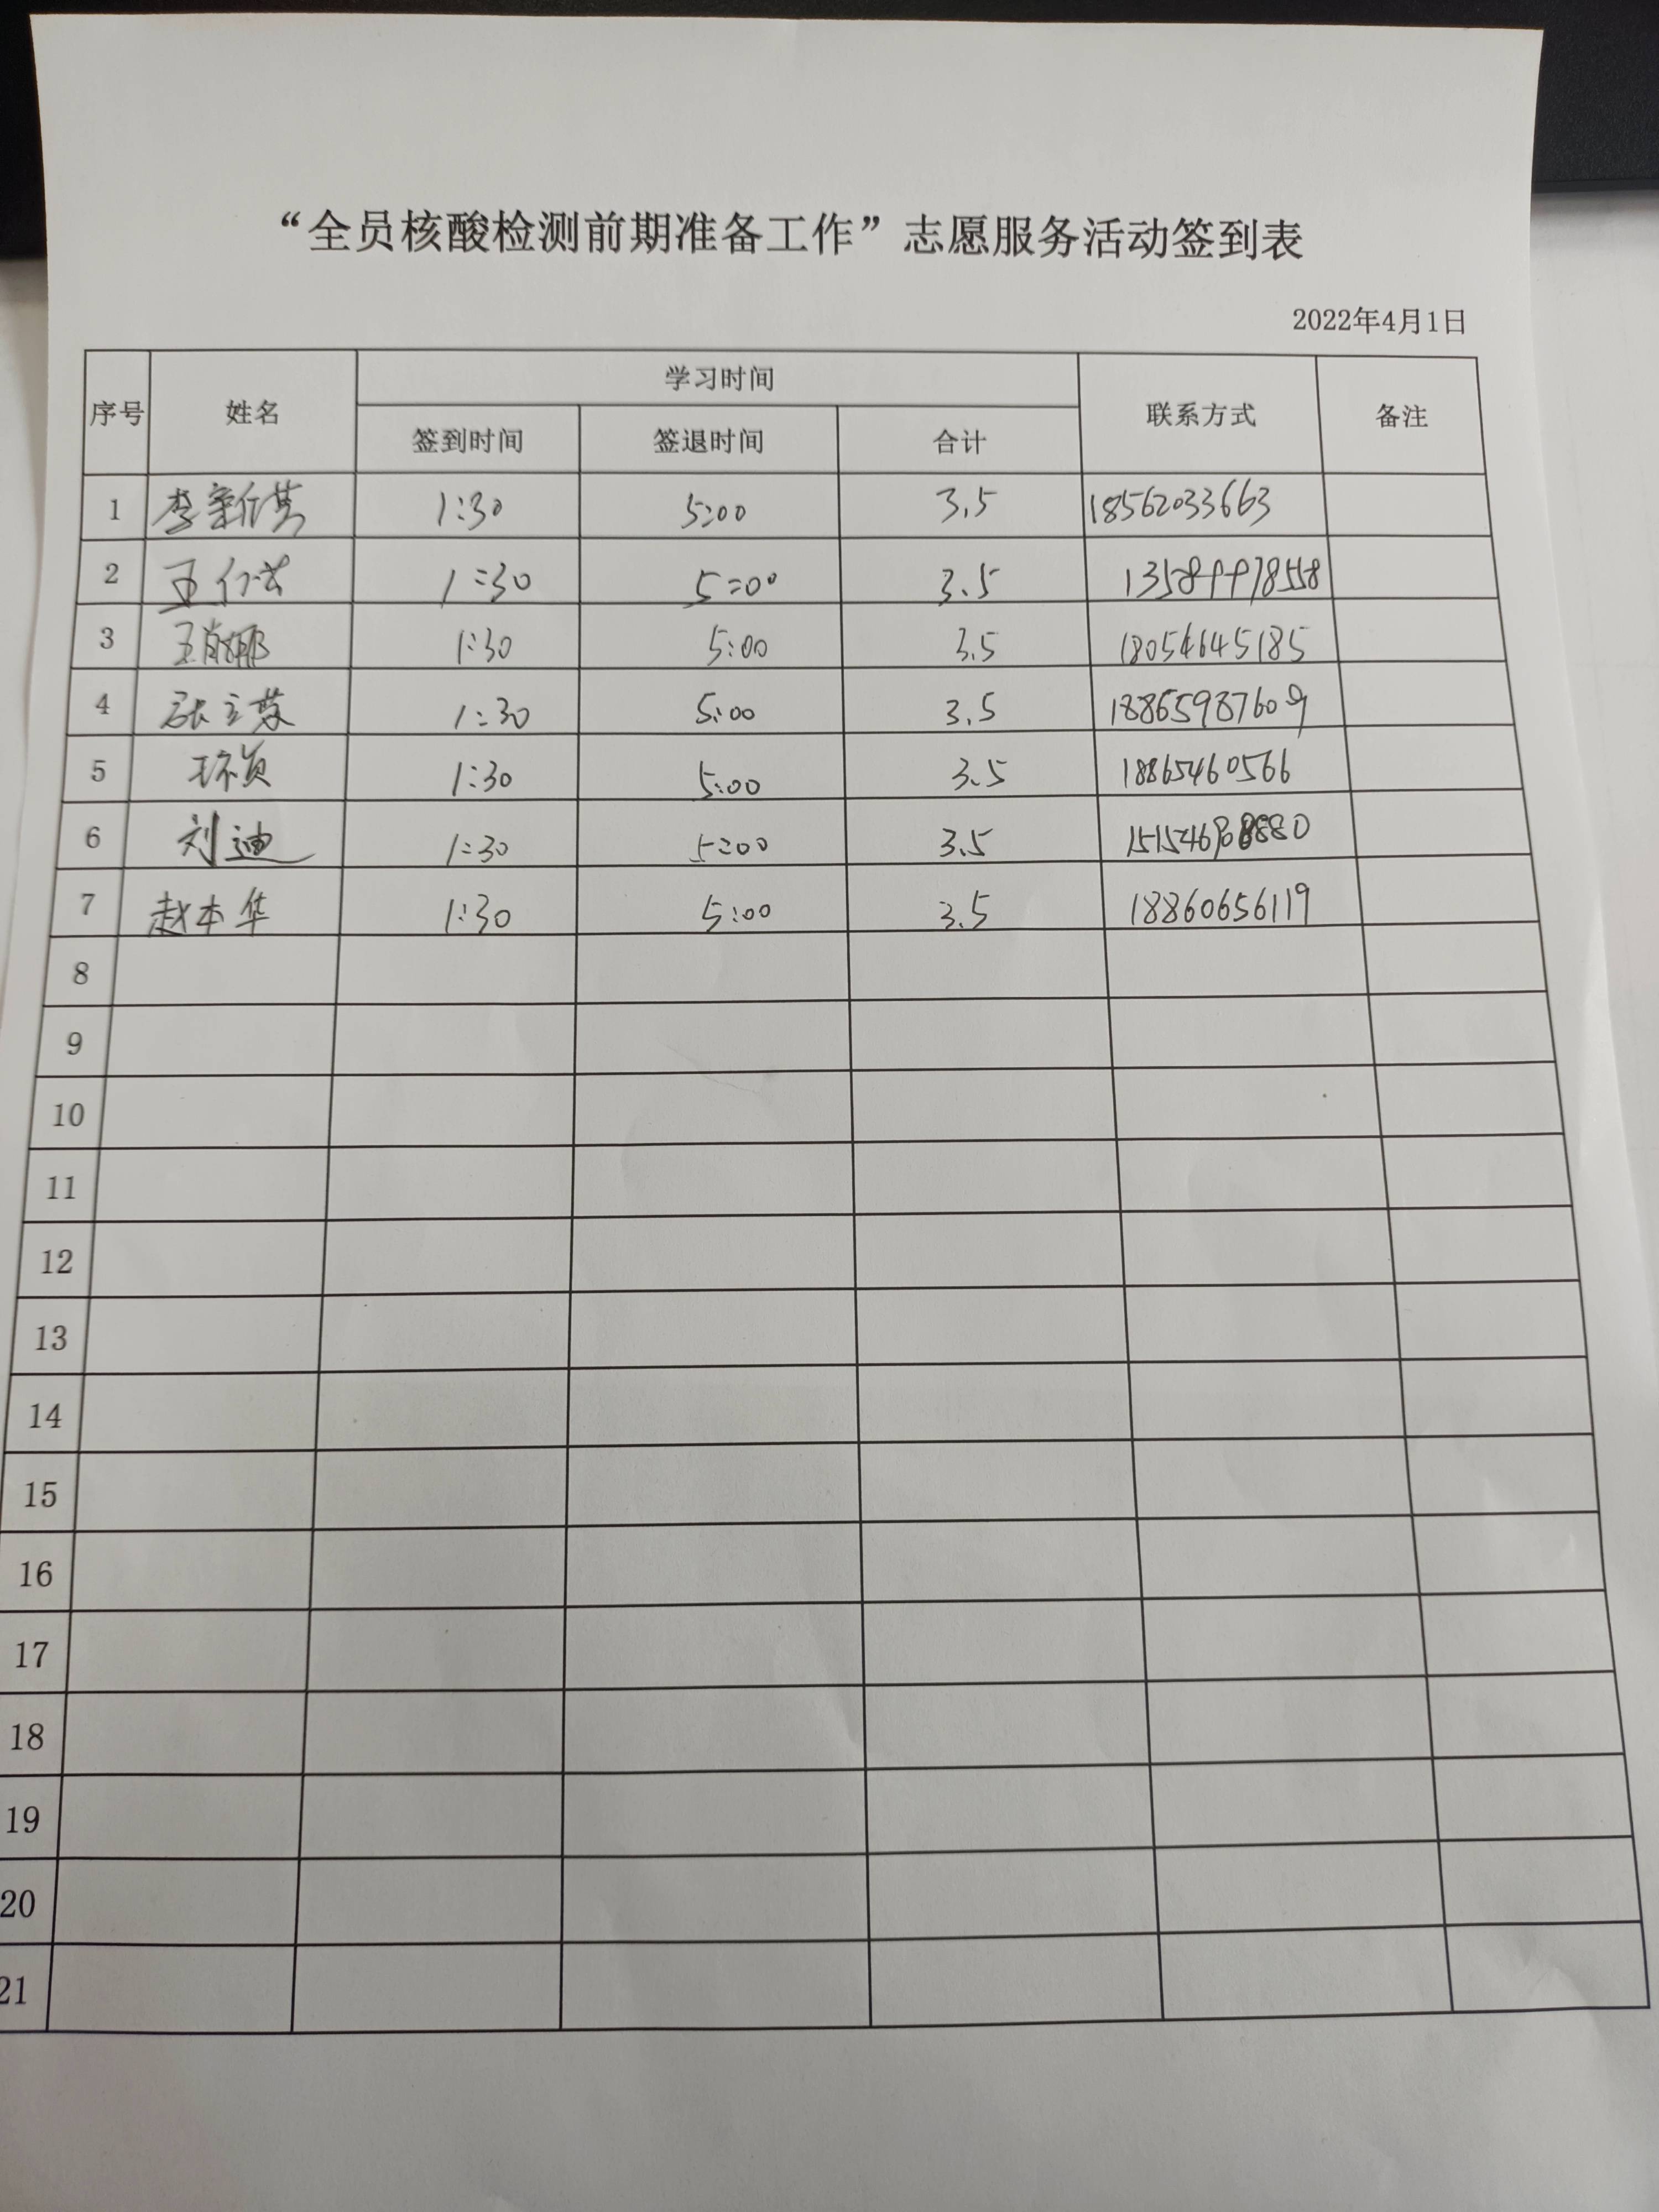 “全员核酸检测前期准备工作”志愿服务活动签到表
2022年4月1日
序号 姓名 学习时间 联系方式 备注
签到时间 签退时间 合计
1 1:30 5:00 3.5 18562033663
2 1:30 5:00 3.5 13589978558
3 王肖娜 1:30 5:00 3.5 18054645185
4 张立英 1:30 5:00 3.5 18865987609
5 1:30 5:00 3.5 18865460566
6 刘迪 1:30 5:00 3.5
7 赵本华 1:30 5:00 3.5 18860656119
8
9
10
11
12
13
14
15
16
17
18
19
20
21